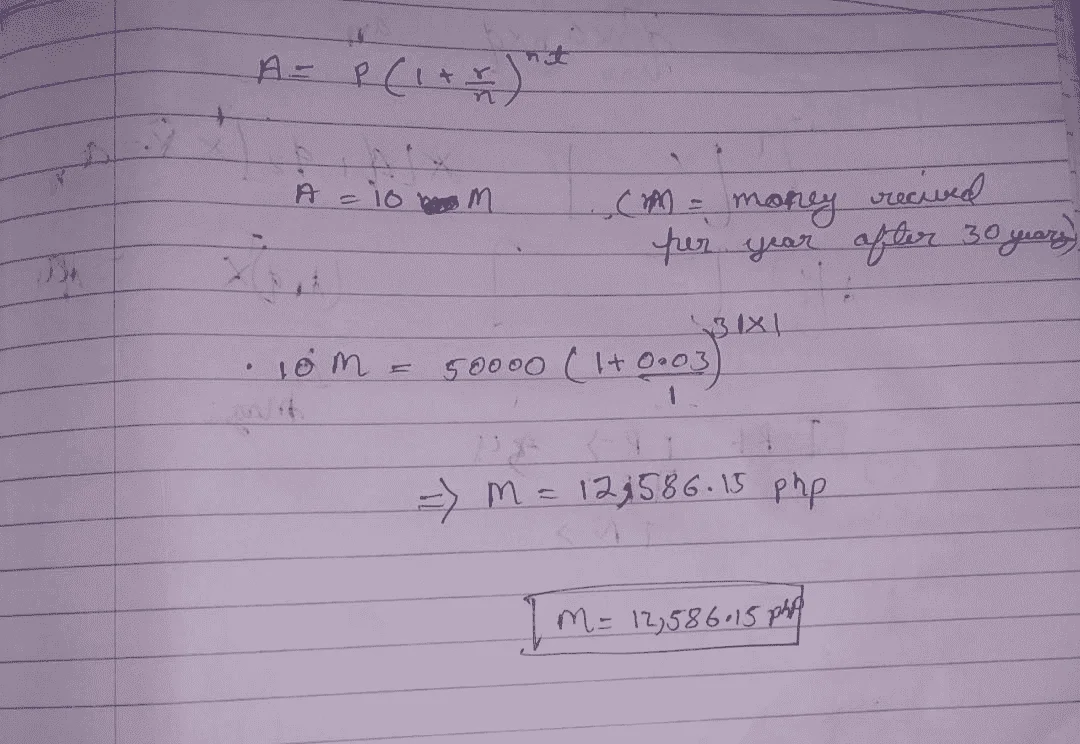 A = P(1 + r/n)^nt
A = 10 M
(M = money recived
per year after 30 years)
10 M = 50000 (1 + 0.03/1)^31×1
=> M = 12,586.15 php
M = 12,586.15 php